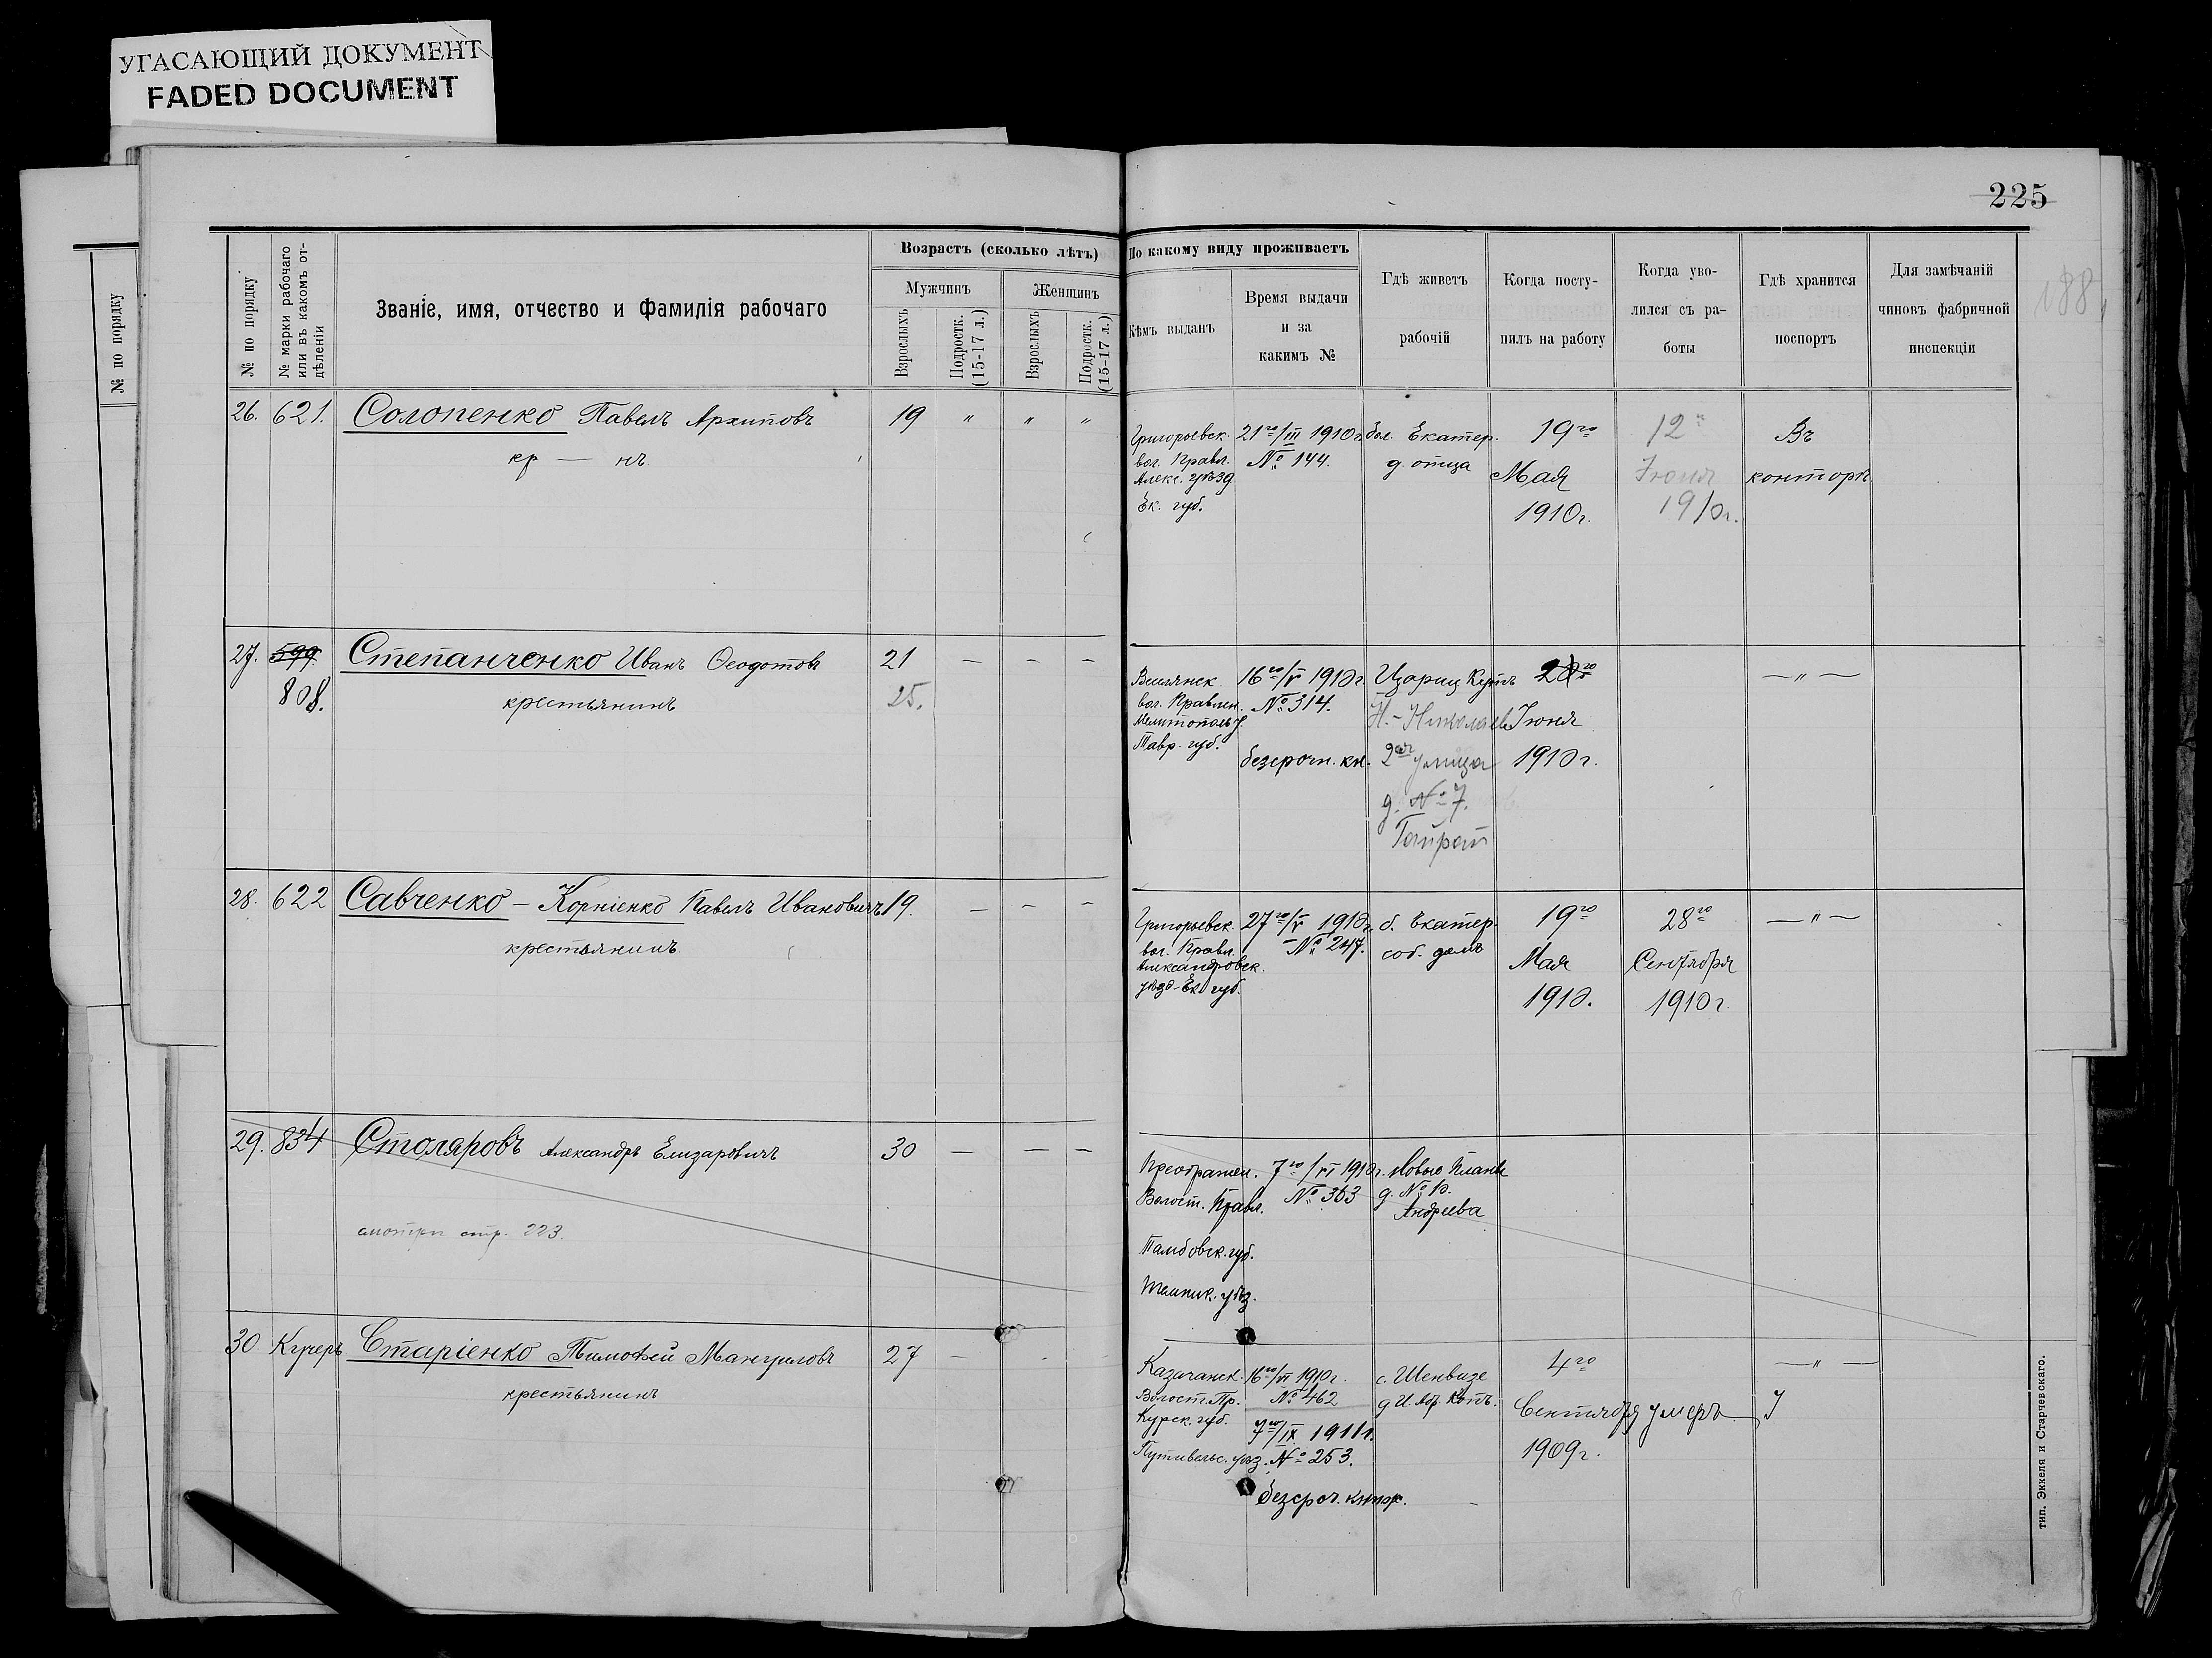 УГАСАЮЩИЙ ДОКУМЕНТ
FADED DOCUMENT
225
188
№ по порядку
№ по порядку
№ марки рабочаго
или въ какомъ от-
дѣленіи
Званіе, имя, отчество и фамилія рабочаго
Возрастъ (сколько лѣтъ)
Мужчинъ
Женщинъ
Взрослыхъ
Подростк.
(15-17 л.)
Взрослыхъ
Подростк.
(15-17 л.)
По какому виду проживаетъ
Кѣмъ выданъ
Время выдачи
и за
какимъ №
Гдѣ живетъ
рабочій
Когда посту-
пилъ на работу
Когда уво-
лился съ ра-
боты
Гдѣ хранится
поспортъ
Для замѣчаній
чиновъ фабричной
инспекціи
26. 621. Солопенко Павелъ Архиповъ 19 " " "
кр — нъ
Григорьевск.
вол. Правл.
Алекс. уѣзд
Ек. губ.
21го/III 1910г.
№ 144.
бол. Екатер.
д. отца
19го
Мая
1910г.
12го
Іюня
1910г.
Въ
конторѣ
27. 599 Степанченко Иванъ Ѳеодотовъ 21 — — —
808. крестьянинъ 25.
Веселянск.
вол. Правлен.
Мелитополь у.
Тавр. губ.
16го/V 1910г.
№ 314.
безсрочн. кн.
Цариц Кутъ
Н.-Николаев
2ая улица
д. № 7.
28го
Іюня
1910г.
— " —
28. 622 Савченко - Корніенко Павелъ Ивановичъ 19. — — —
крестьянинъ
Григорьевск.
вол. Правл.
Александровск.
уѣзд-Ек губ.
27го/V 1910г.
№ 247.
б. Екатер.
соб. домъ
19го
Мая
1910.
28го
Сентября
1910г.
— " —
29. 834 Столяровъ Александръ Елизаровичъ 30 — — —
смотри стр. 223.
Преображен.
Волост. Правл.
Тамбовск. губ.
Темник. уѣз.
7го/VI 1910г.
№ 363
Новые Планы
Андреева
30 Кучеръ Старіенко Тимофей Мануиловъ 27 —
крестьянинъ
Казачанск.
Волост. Пр.
Курск. губ.
Путивельс. уѣз.
16го/VI 1910г.
№ 462
7го/IX 1911г.
№ 253.
безсроч. книж.
с. Шенвизе
4го
Сентября
1909г.
умеръ
— " —
тип. Эккеля и Старчевскаго.